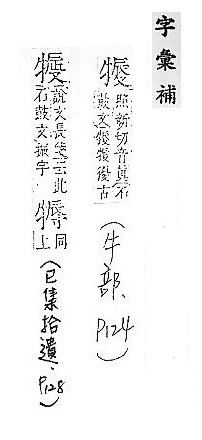 字彙補
照新切音真石
鼓文
古
(牛部、P124)
說文長箋云此
石鼓文振字
同
上
(巳集拾遺、P128)